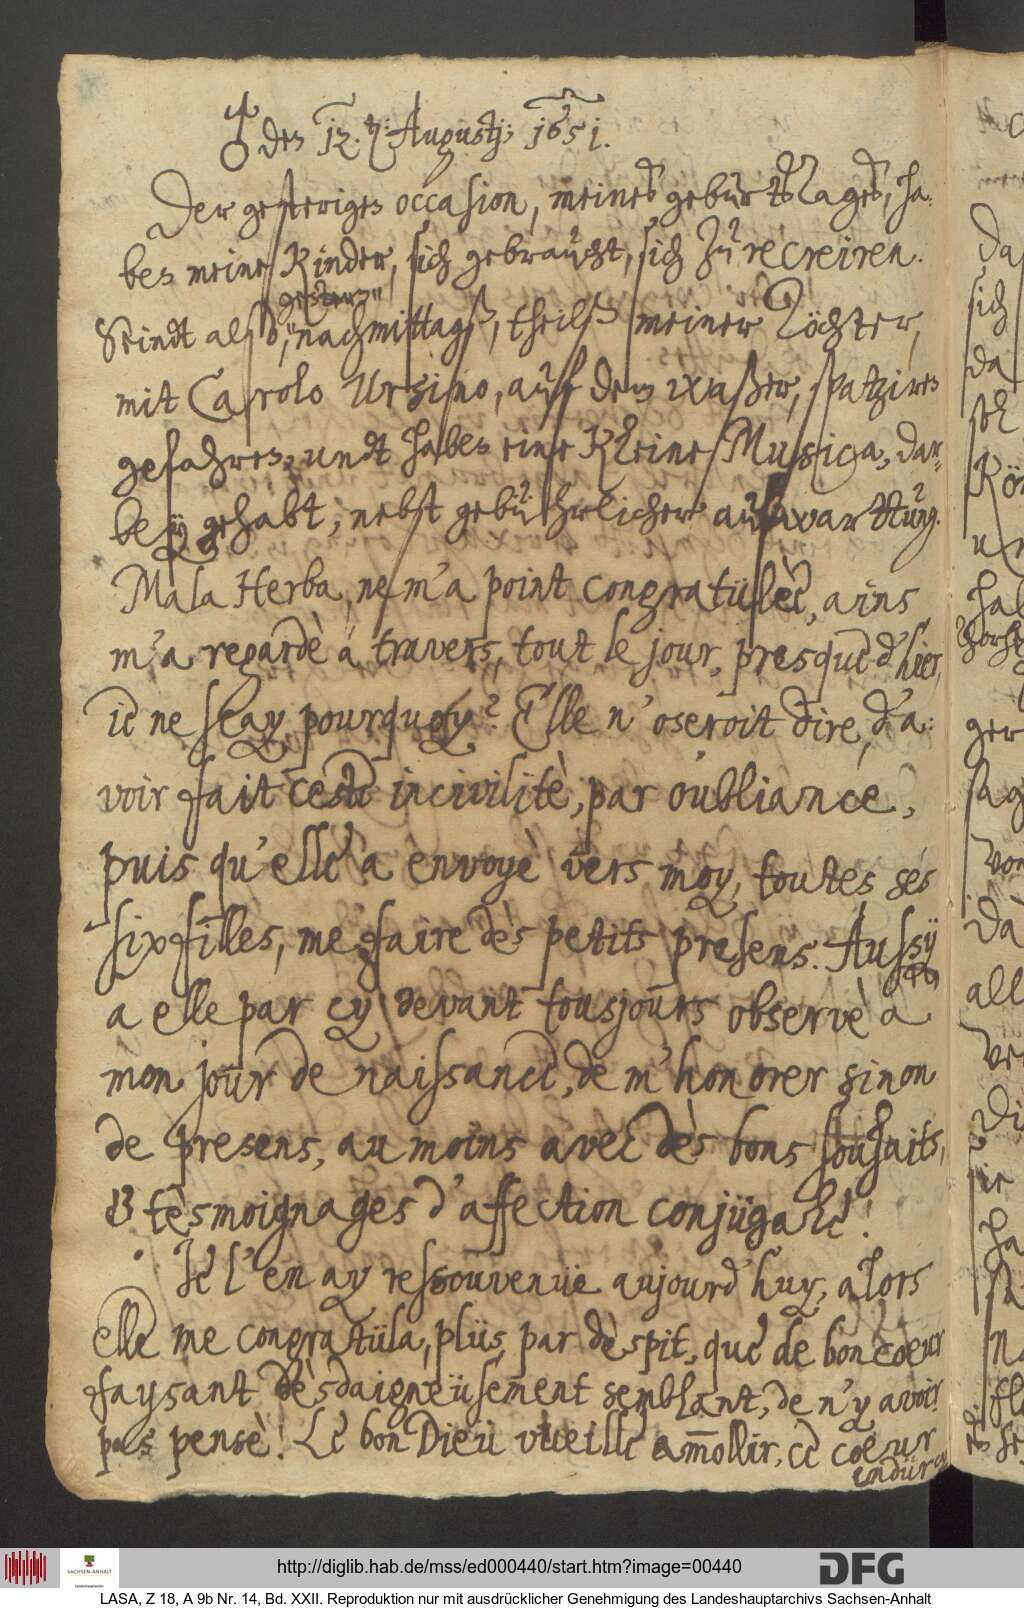 ♂ den 12. Augustj: 1651.
Der gesterigen occasion, meines geburtsTages, ha¬
ben meine Kinder, sich gebraucht, sich zu recreiren.
Seindt also, gestern nachmittagß, theilß meiner Töchter,
mit Carolo Ursino, auf dem waßer, spatziren
gefahren, undt haben eine kleine Musica, dar¬
bey gehabt, nebst gebührlicher aufwarttung.
Mala Herba, ne m'a point congratülèe, ains
m'a regardè á travers, tout le jour, presque d'hier,
ie ne scay pourquoy? Elle n'oseroit dire, d'a:
voir fait ceste incivilitè, par oubliance,
puis qu'elle a envoyè vers moy, toutes ses
six filles, me faire dès petits presens. Aussy
a elle par cy devant tousjours observè a
mon jour de naissance, de m'honorer sinon
de presens, au moins avec dès bons souhaits,
& tèsmoignages d'affection conjügale!
Je l'en ay ressouvenüe aujourd'huy, alors
elle me congratüla, plüs, par dèspit, que de bon coeur
faysant dèsdaigneüsement semblant, de n'y avoir
pas pensè! Le bon Dieu vueille amollir, ce coeur
endürcy
http://diglib.hab.de/mss/ed000440/start.htm?image=00440
DFG
SACHSEN-ANHALT
LASA, Z 18, A 9b Nr. 14, Bd. XXII. Reproduktion nur mit ausdrücklicher Genehmigung des Landeshauptarchivs Sachsen-Anhalt